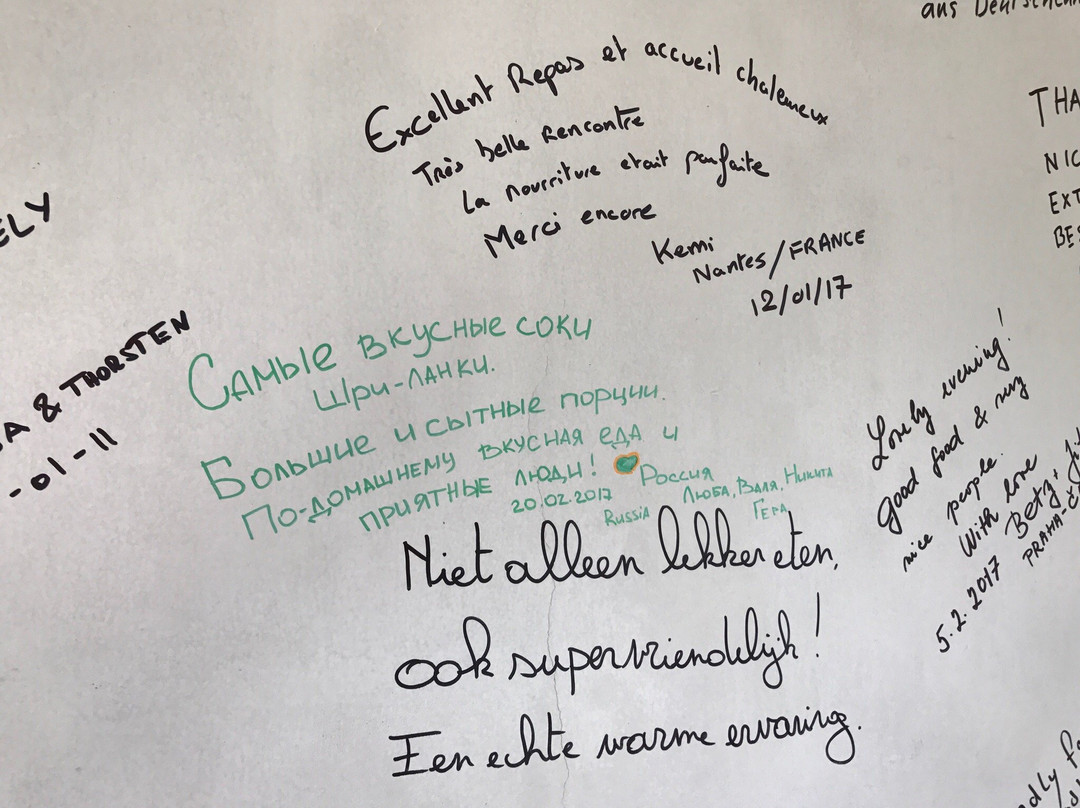 Excellent Repas et accueil chaleureux
Très belle Rencontre
La nourriture etait parfaite
Merci encore
Kemi
Nantes/FRANCE
12/01/17
ELY
A & THORSTEN
-01-11
Самые вкусные соки
Шри-Ланки.
Большие и сытные порции.
По-домашнему вкусная еда и
приятные люди!
20.02.2017 Россия
Russia
Люба, Валя, Никита
Гера
Niet alleen lekker eten,
ook supervriendelijk!
Een echte warme ervaring.
Lovely evening!
good food & very
nice people.
With love
5.2.2017
PRAHA
aus
THA
NIC
EXT
BES